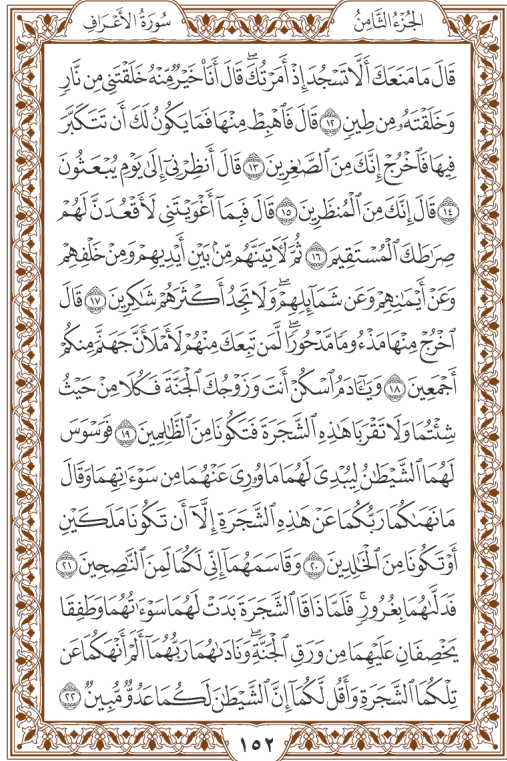 الجُزْءُ الثَّامِنُ
سُورَةُ الأَعْرَافِ
قَالَ مَا مَنَعَكَ أَلَّا تَسْجُدَ إِذْ أَمَرْتُكَۖ قَالَ أَنَا۠ خَيْرٌ مِّنْهُ خَلَقْتَنِي مِن نَّارٍ
وَخَلَقْتَهُۥ مِن طِينٍ ۝١٢ قَالَ فَٱهْبِطْ مِنْهَا فَمَا يَكُونُ لَكَ أَن تَتَكَبَّرَ
فِيهَا فَٱخْرُجْ إِنَّكَ مِنَ ٱلصَّٰغِرِينَ ۝١٣ قَالَ أَنظِرْنِىٓ إِلَىٰ يَوْمِ يُبْعَثُونَ
۝١٤ قَالَ إِنَّكَ مِنَ ٱلْمُنظَرِينَ ۝١٥ قَالَ فَبِمَآ أَغْوَيْتَنِى لَأَقْعُدَنَّ لَهُمْ
صِرَٰطَكَ ٱلْمُسْتَقِيمَ ۝١٦ ثُمَّ لَءَاتِيَنَّهُم مِّنۢ بَيْنِ أَيْدِيهِمْ وَمِنْ خَلْفِهِمْ
وَعَنْ أَيْمَٰنِهِمْ وَعَن شَمَآئِلِهِمْۖ وَلَا تَجِدُ أَكْثَرَهُمْ شَٰكِرِينَ ۝١٧ قَالَ
ٱخْرُجْ مِنْهَا مَذْءُومًا مَّدْحُورًاۖ لَّمَن تَبِعَكَ مِنْهُمْ لَأَمْلَأَنَّ جَهَنَّمَ مِنكُمْ
أَجْمَعِينَ ۝١٨ وَيَٰٓـَٔادَمُ ٱسْكُنْ أَنتَ وَزَوْجُكَ ٱلْجَنَّةَ فَكُلَا مِنْ حَيْثُ
شِئْتُمَا وَلَا تَقْرَبَا هَٰذِهِ ٱلشَّجَرَةَ فَتَكُونَا مِنَ ٱلظَّٰلِمِينَ ۝١٩ فَوَسْوَسَ
لَهُمَا ٱلشَّيْطَٰنُ لِيُبْدِىَ لَهُمَا مَا وُۥرِىَ عَنْهُمَا مِن سَوْءَٰتِهِمَا وَقَالَ
مَا نَهَىٰكُمَا رَبُّكُمَا عَنْ هَٰذِهِ ٱلشَّجَرَةِ إِلَّآ أَن تَكُونَا مَلَكَيْنِ
أَوْ تَكُونَا مِنَ ٱلْخَٰلِدِينَ ۝٢٠ وَقَاسَمَهُمَآ إِنِّى لَكُمَا لَمِنَ ٱلنَّٰصِحِينَ ۝٢١
فَدَلَّىٰهُمَا بِغُرُورٍۚ فَلَمَّا ذَاقَا ٱلشَّجَرَةَ بَدَتْ لَهُمَا سَوْءَٰتُهُمَا وَطَفِقَا
يَخْصِفَانِ عَلَيْهِمَا مِن وَرَقِ ٱلْجَنَّةِۖ وَنَادَىٰهُمَا رَبُّهُمَآ أَلَمْ أَنْهَكُمَا عَن
تِلْكُمَا ٱلشَّجَرَةِ وَأَقُل لَّكُمَآ إِنَّ ٱلشَّيْطَٰنَ لَكُمَا عَدُوٌّ مُّبِينٌ ۝٢٢
١٥٢